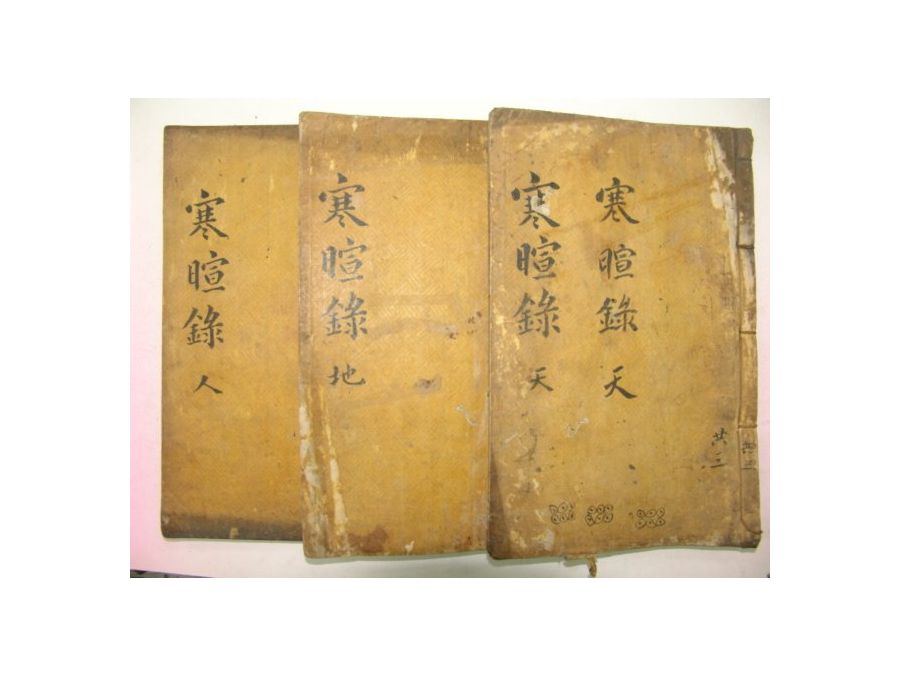 寒暄錄 天
寒暄錄 天
共三
共三
寒暄錄 地
寒暄錄 人